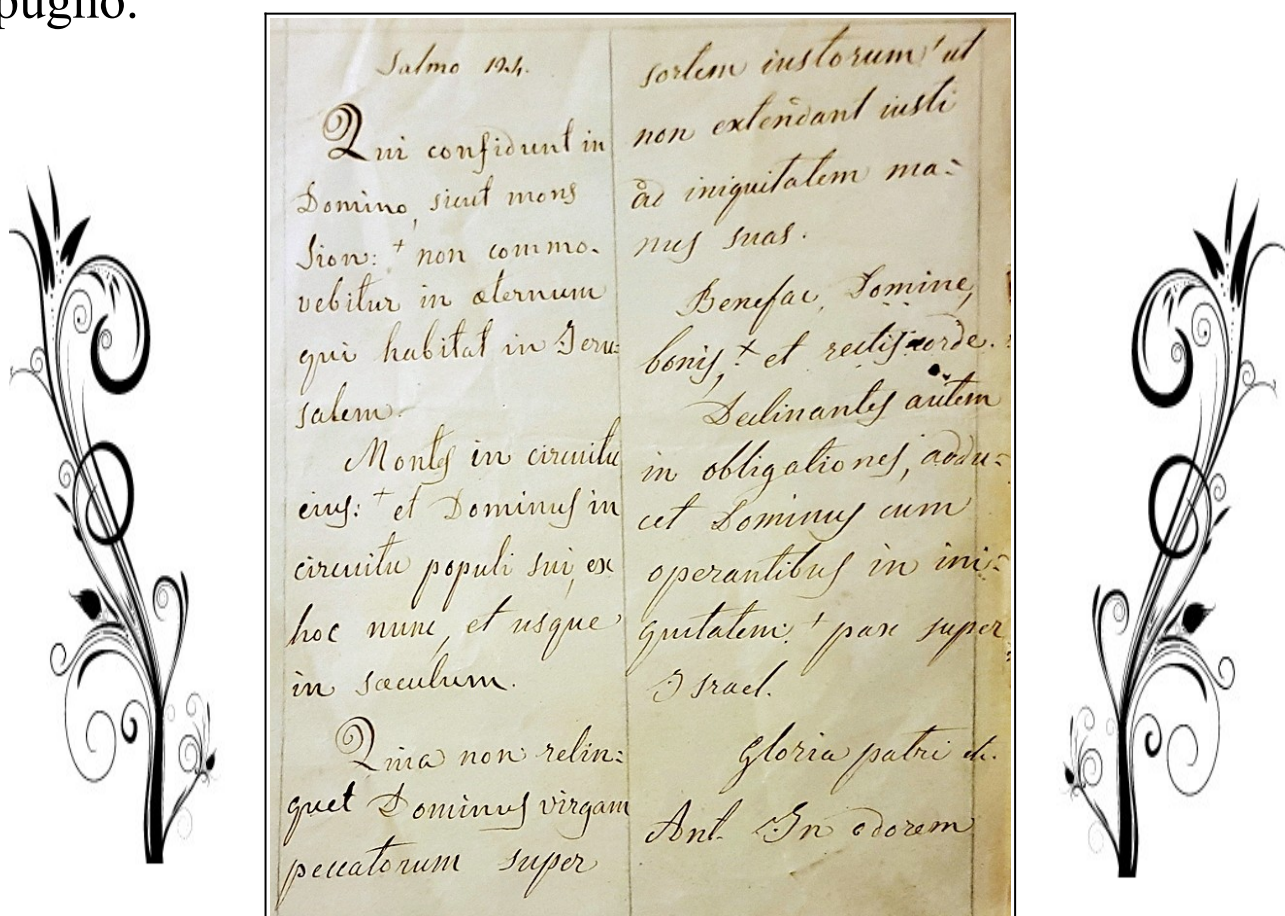 pugno.
Salmo 124.
Qui confidunt in
Domino, sicut mons
Sion: + non commo-
vebitur in æternum
qui habitat in Jeru=
salem.
Montes in circuitu
eius: + et Dominus in
circuitu populi sui, ex
hoc nunc, et usque
in sæculum.
Quia non relin=
quet Dominus virgam
peccatorum super
sortem iustorum + ut
non extendant iusti
ad iniquitatem ma=
nus suas.
Benefac, Domine,
bonis, + et rectis corde.
Declinantes autem
in obligationes, addu=
cet Dominus cum
operantibus in ini=
quitatem: + pax super
Israel.
Gloria patri &.
Ant. In odorem